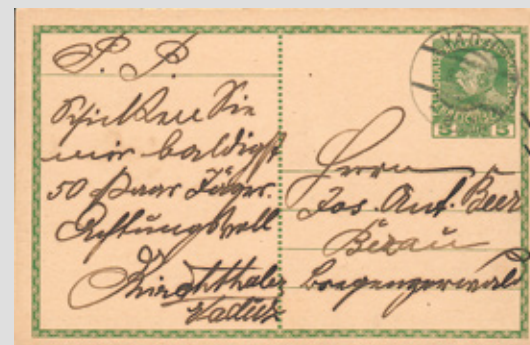 P. P.
Schicken Sie
mir baldigst
50 Paar Jäger.
Achtungsvoll
Vaduz
Herrn
Jos. Ant. Beer
Bezau
Bregenzerwald
5 5